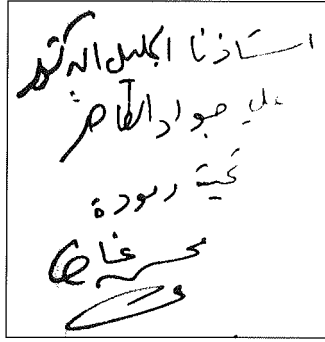 استاذنا الجليل الدكتور
علي جواد الطاهر
تحية ومودة
محسن غياض